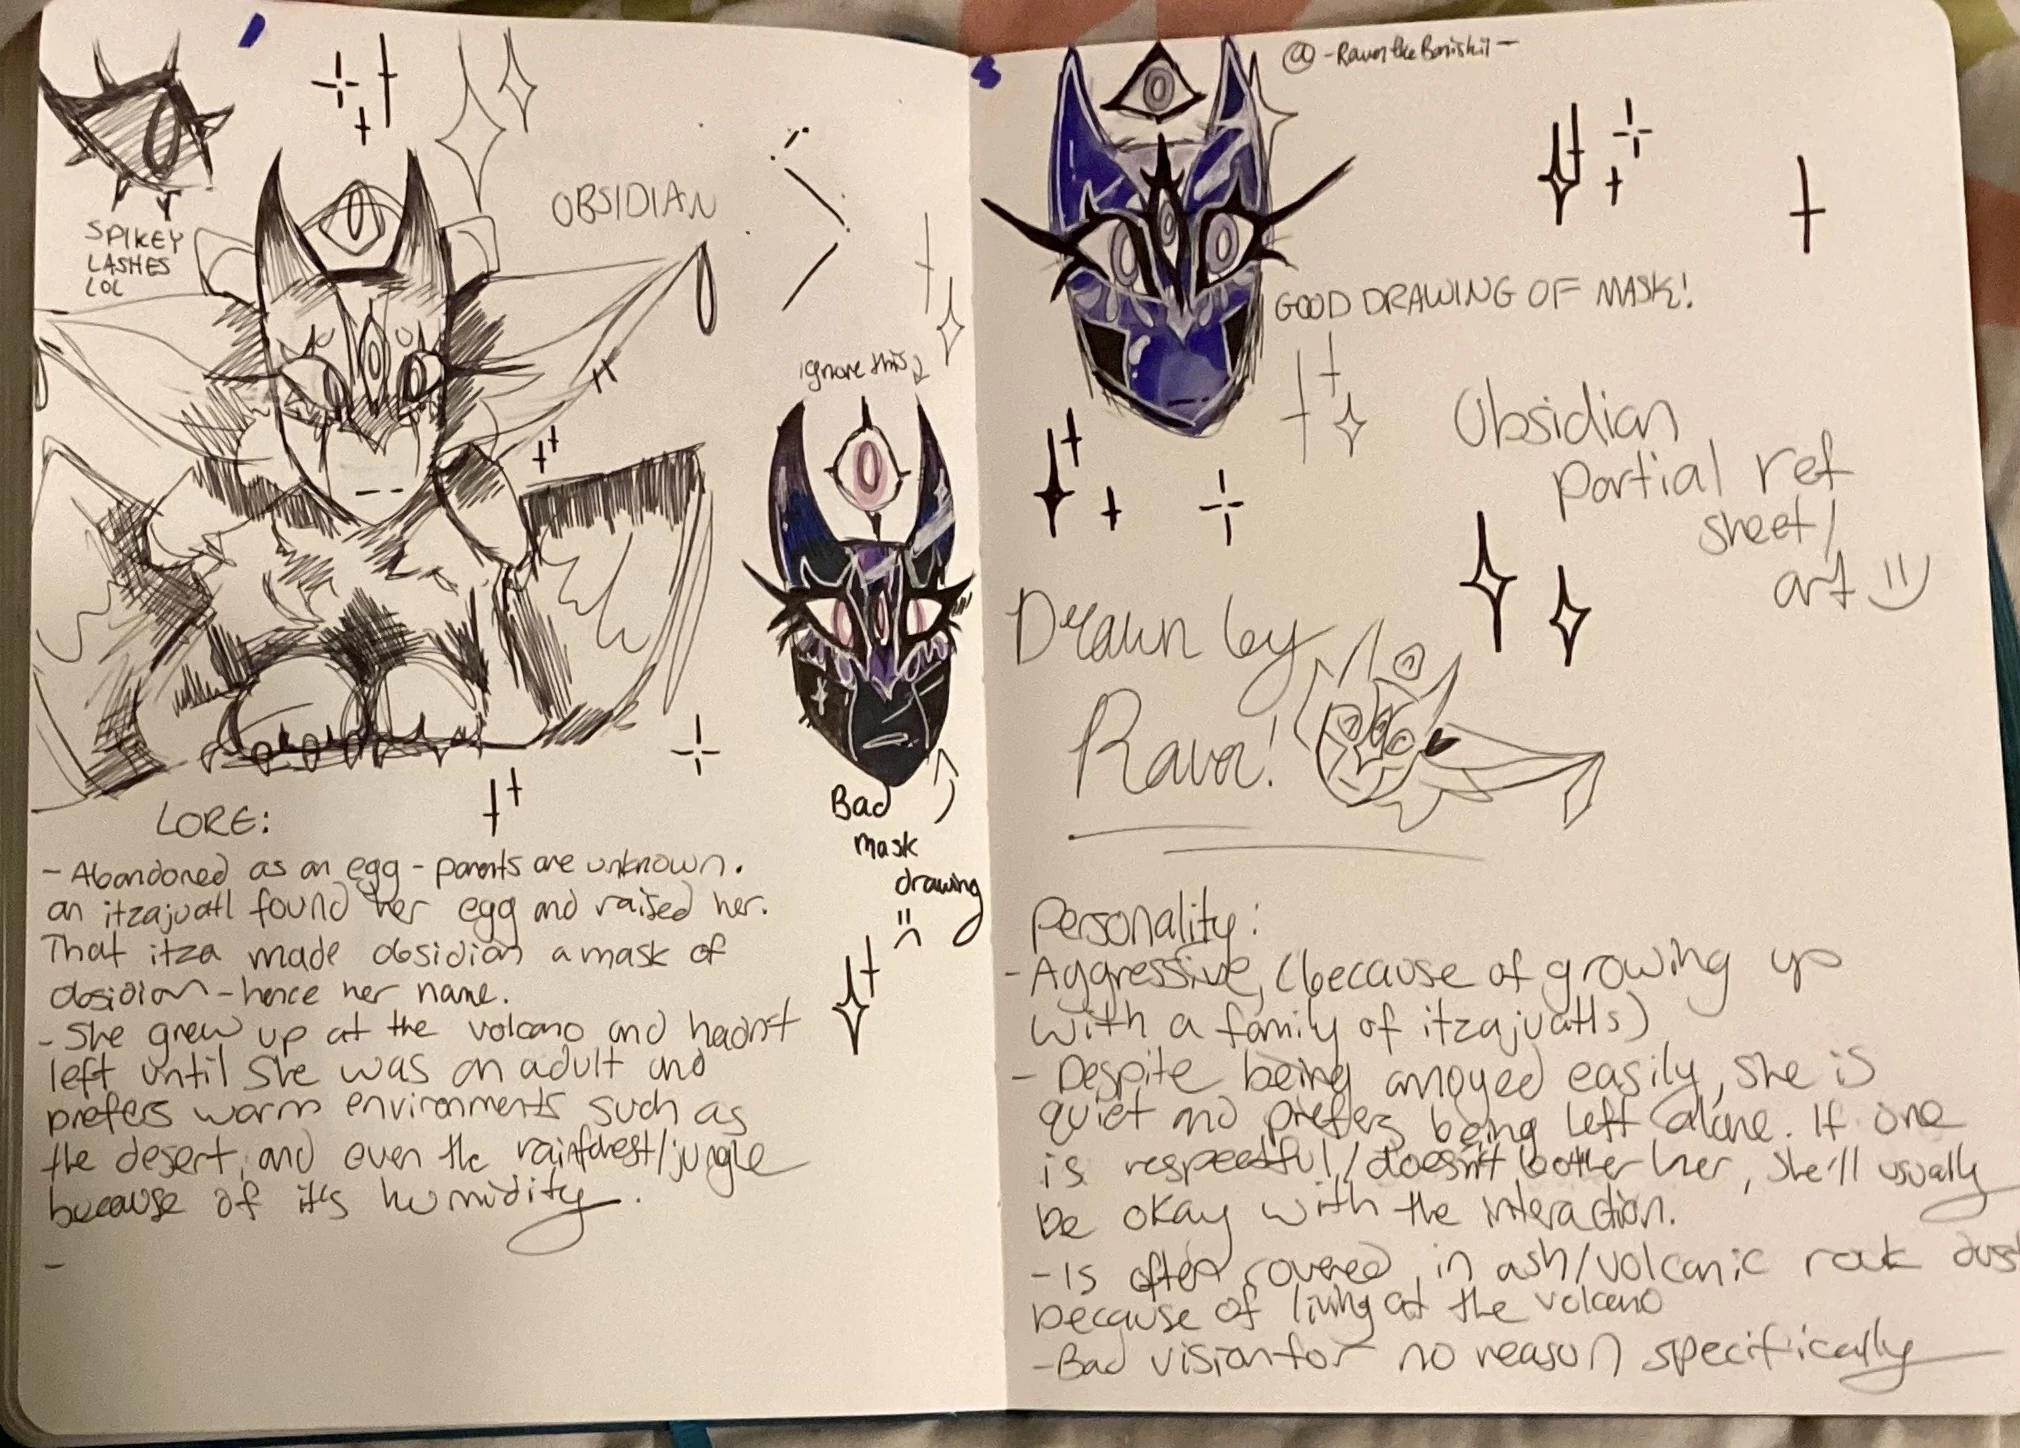 SPIKEY
LASHES
LOL
OBSIDIAN
ignore this
Bad
mask
drawing
LORE:
- Abandoned as an egg - parents are unknown.
an itzajuatl found her egg and raised her.
That itza made obsidian a mask of
obsidian - hence her name.
- She grew up at the volcano and hadn't
left until she was an adult and
prefers warm environments such as
the desert, and even the rainforest/jungle
because of it's humidity.
-
GOOD DRAWING OF MASK!
Obsidian
partial ref
sheet/
art
Drawn by
Personality:
- Aggressive, (because of growing up
with a family of itzajuatls)
- Despite being annoyed easily, she is
quiet and prefers being left alone. If one
is respectful/doesn't bother her, she'll usually
be okay with the interaction.
- Is often covered in ash/volcanic rock dust
because of living at the volcano
- Bad vision for no reason specifically